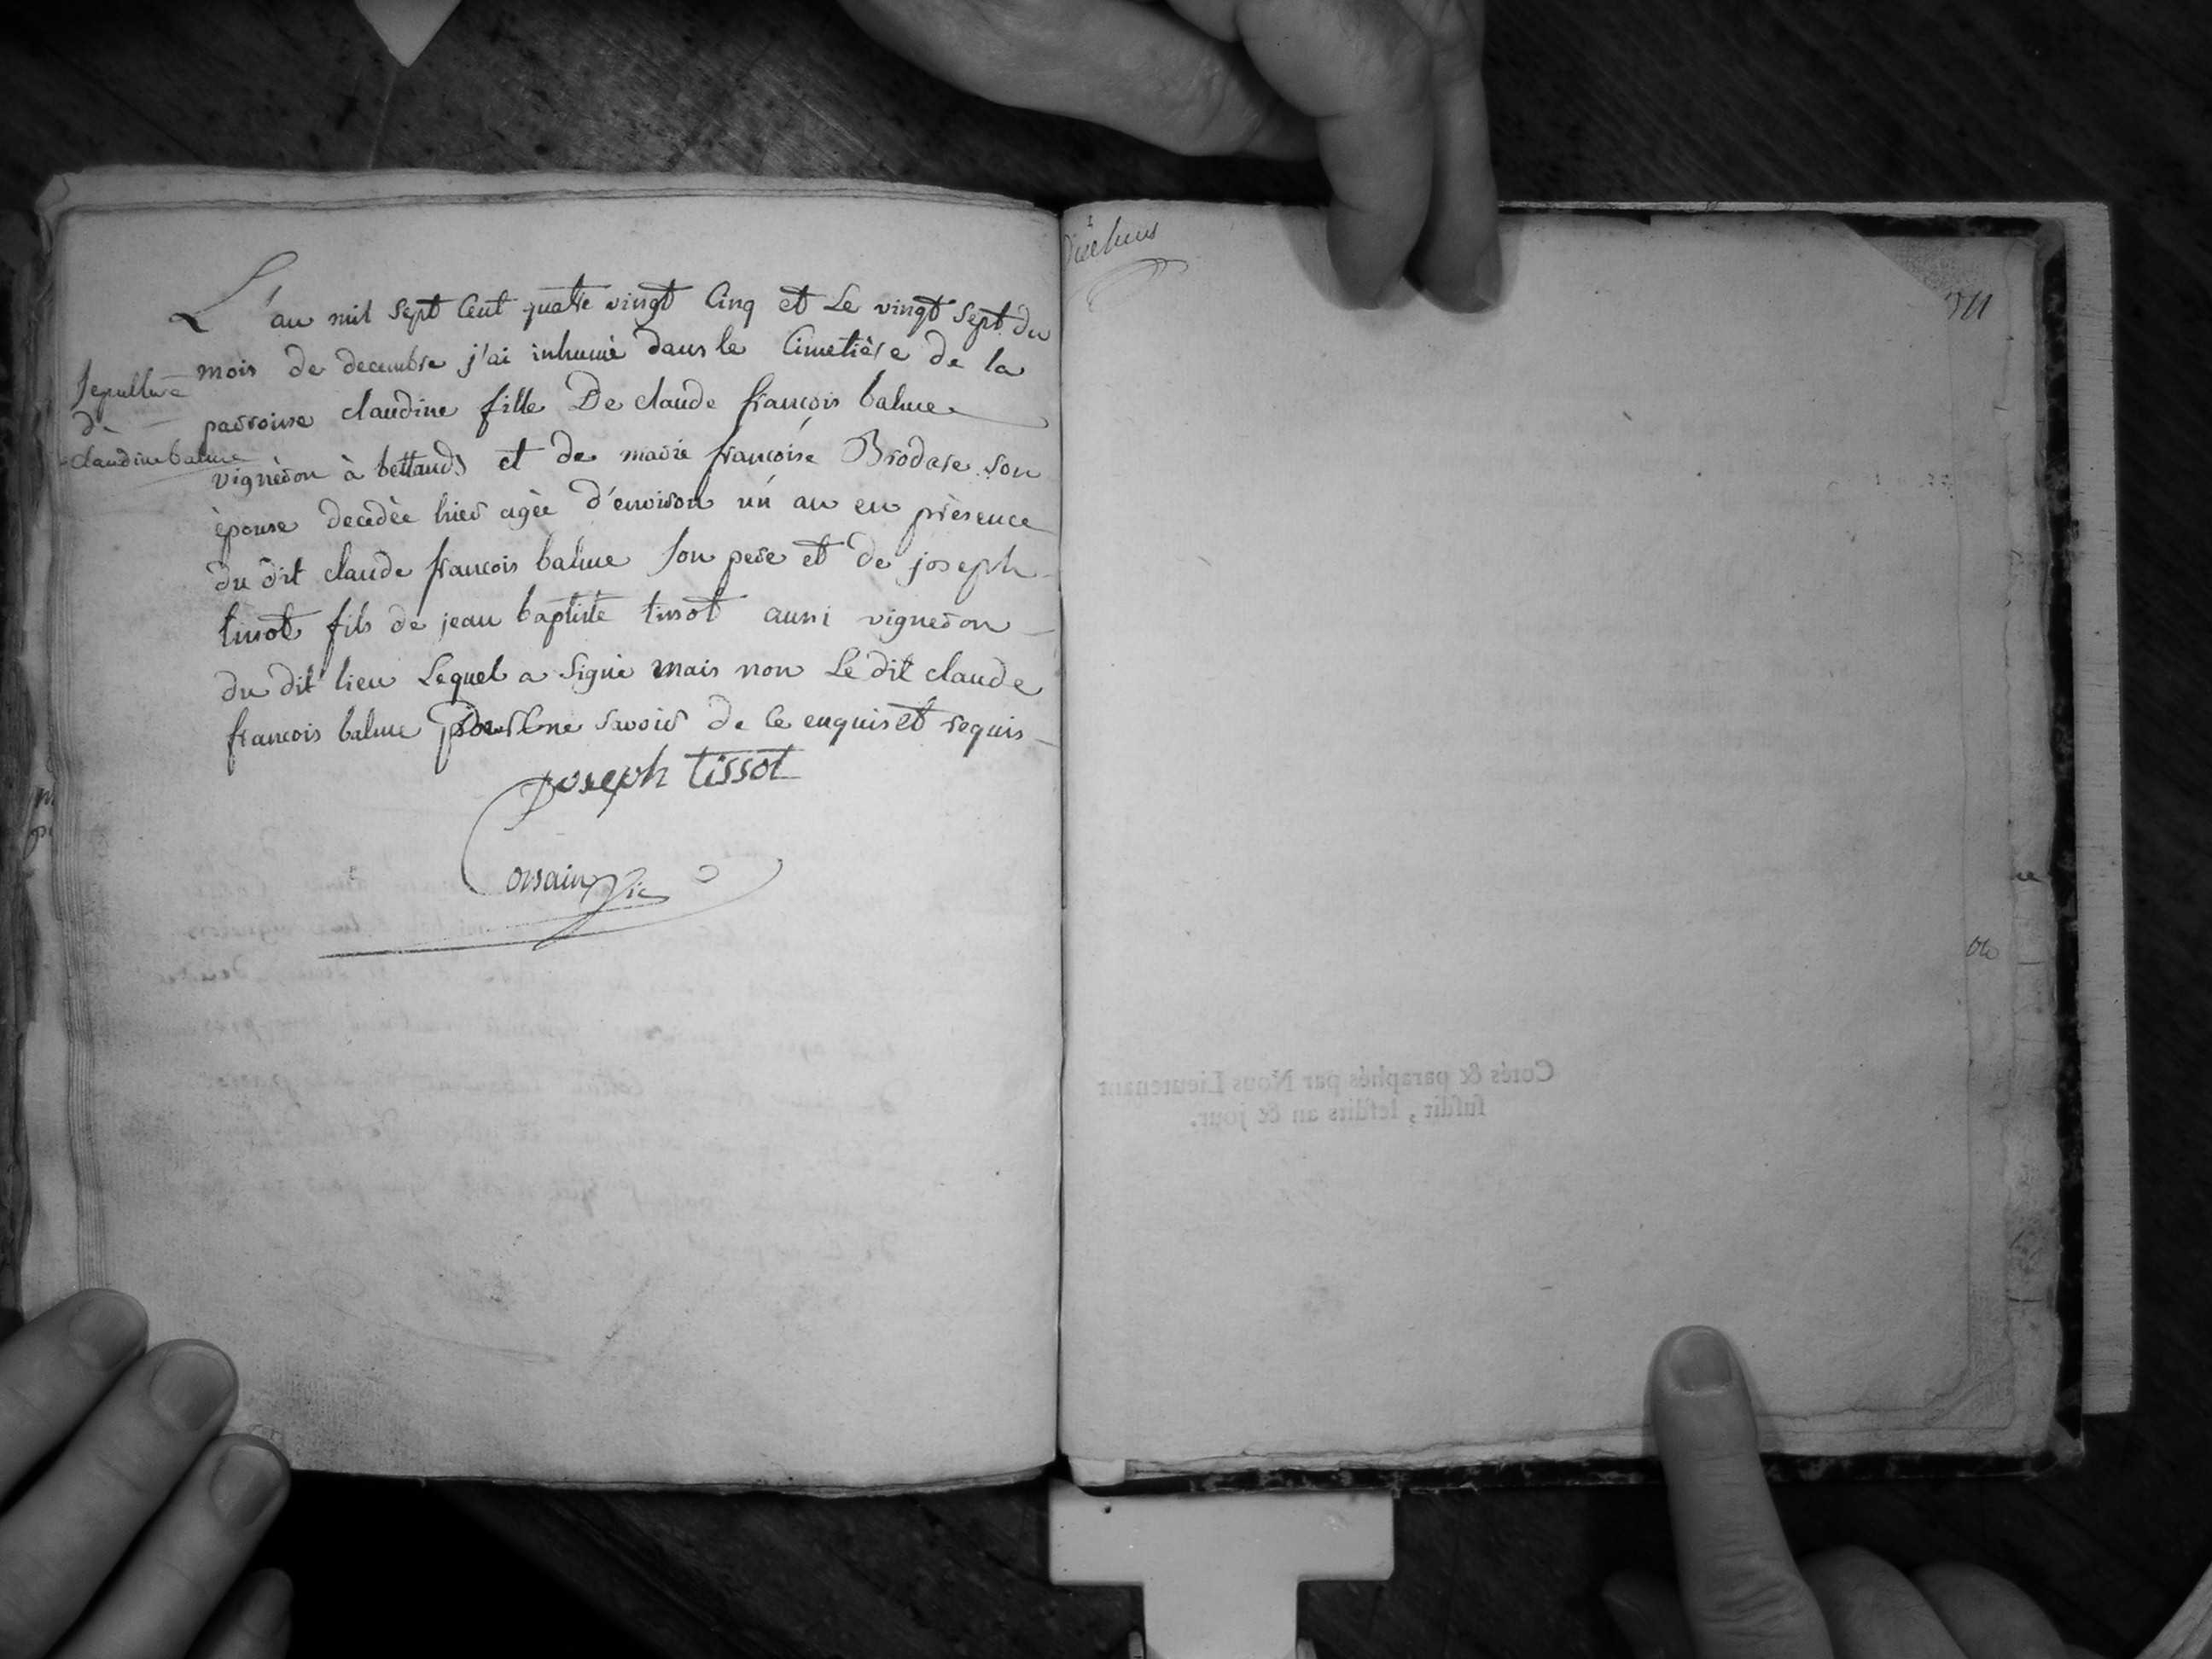 L'an mil sept cent quatre vingt cinq et le vingt sept du
mois de decembre j'ai inhumé dans le cimetière de la
sepulture
de
claudine balme
parroisse claudine fille De claude françois balme
vigneron à bettand et de marie françoise Brodare son
èpouse decedèe hier agèe d'environ un an en prèsence
du dit claude francois balme son pere et de joseph
tissot fils de jean baptiste tissot aussi vigneron
du dit lieu Lequel a signé mais non Le dit claude
francois balme pour ne savoir de ce enquis et requis
joseph tissot
vic
Cotés & paraphés par Nous Lieutenant
susdit, lesdits an & jour.